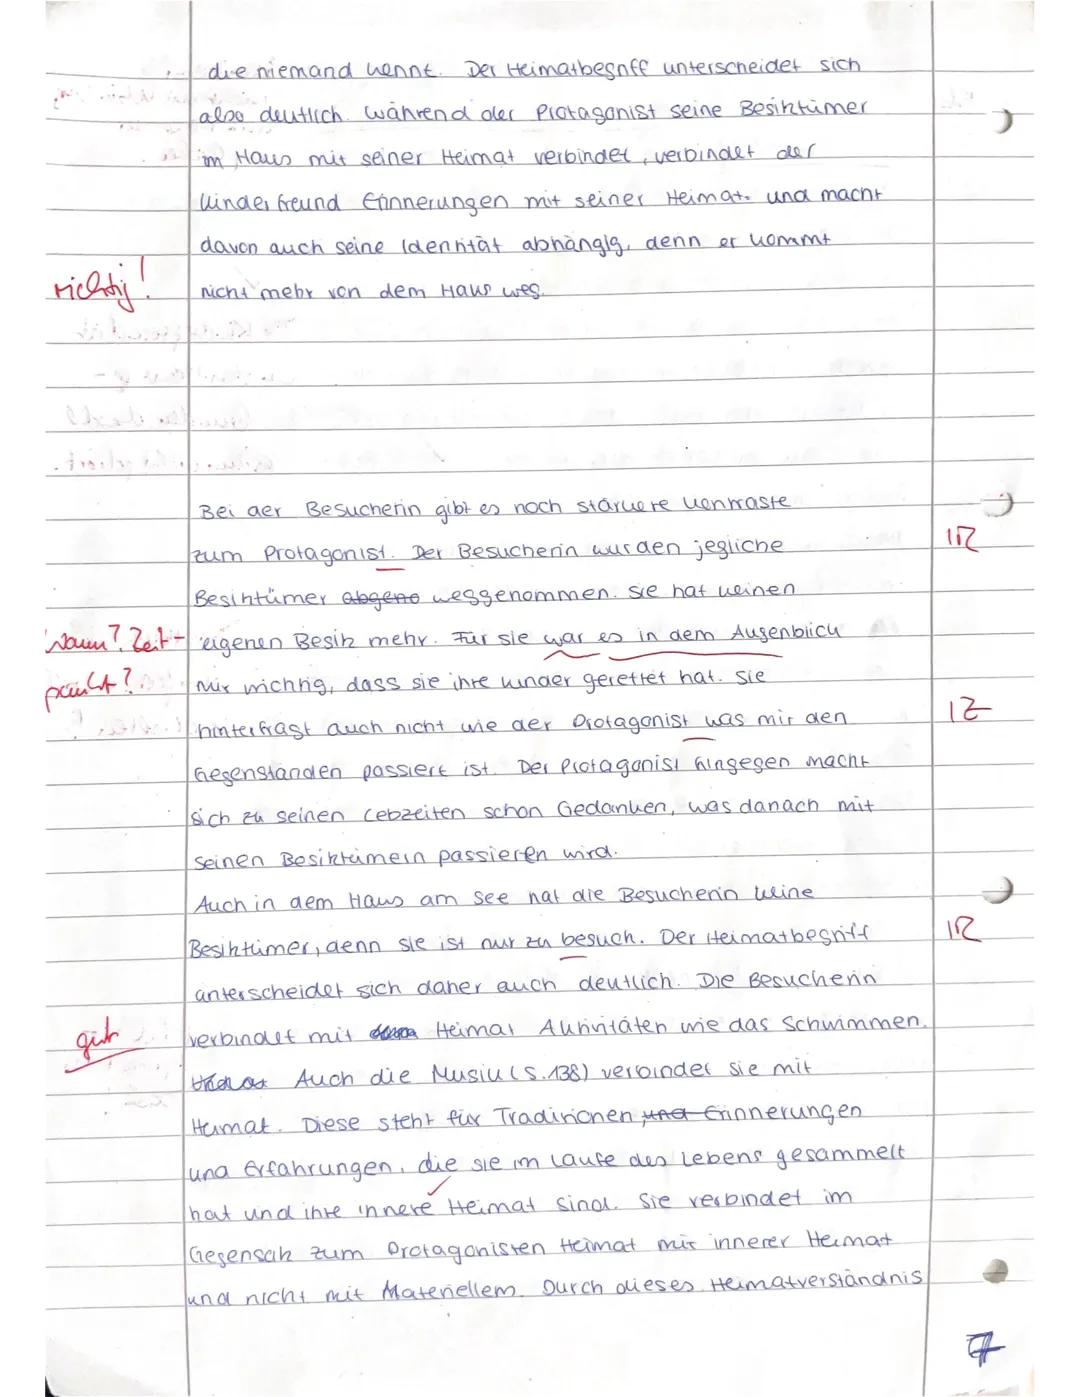 die niemand kennt. Der Heimatbegriff unterscheidet sich
also deutlich. Während der Protagonist seine Besitztümer
im Haus mit seiner Heimat verbindet, verbindet der
Kinderfreund Erinnerungen mit seiner Heimat und macht
davon auch seine Identität abhängig, denn er kommt
richtig! nicht mehr von dem Haus weg.
Bei der Besucherin gibt es noch stärkere Kontraste
zum Protagonist. Der Besucherin wurden jegliche R
Besitztümer abgeno weggenommen. Sie hat keinen
Wann? Zeit- eigenen Besitz mehr. Für sie war es in dem Augenblick
punkt? nur wichtig, dass sie ihre Kinder gerettet hat. Sie
hinterfragt auch nicht wie der Protagonist was mit den 1Z
Gegenständen passiert ist. Der Protagonist hingegen macht
sich zu seinen Lebzeiten schon Gedanken, was danach mit
seinen Besitztümern passieren wird.
Auch in dem Haus am See hat die Besucherin keine
Besitztümer, denn sie ist nur zu besuch. Der Heimatbegriff R
unterscheidet sich daher auch deutlich. Die Besucherin
gut verbindet mit Heimat Aktivitäten wie das Schwimmen.
Auch die Musik (S. 138) verbindet sie mit
Heimat. Diese steht für Traditionen, und Erinnerungen
und Erfahrungen, die sie im Laufe des Lebens gesammelt
hat und ihre innere Heimat sind. Sie verbindet im
Gegensatz zum Protagonisten Heimat mit innerer Heimat
und nicht mit Materiellem. Durch dieses Heimatverständnis
7